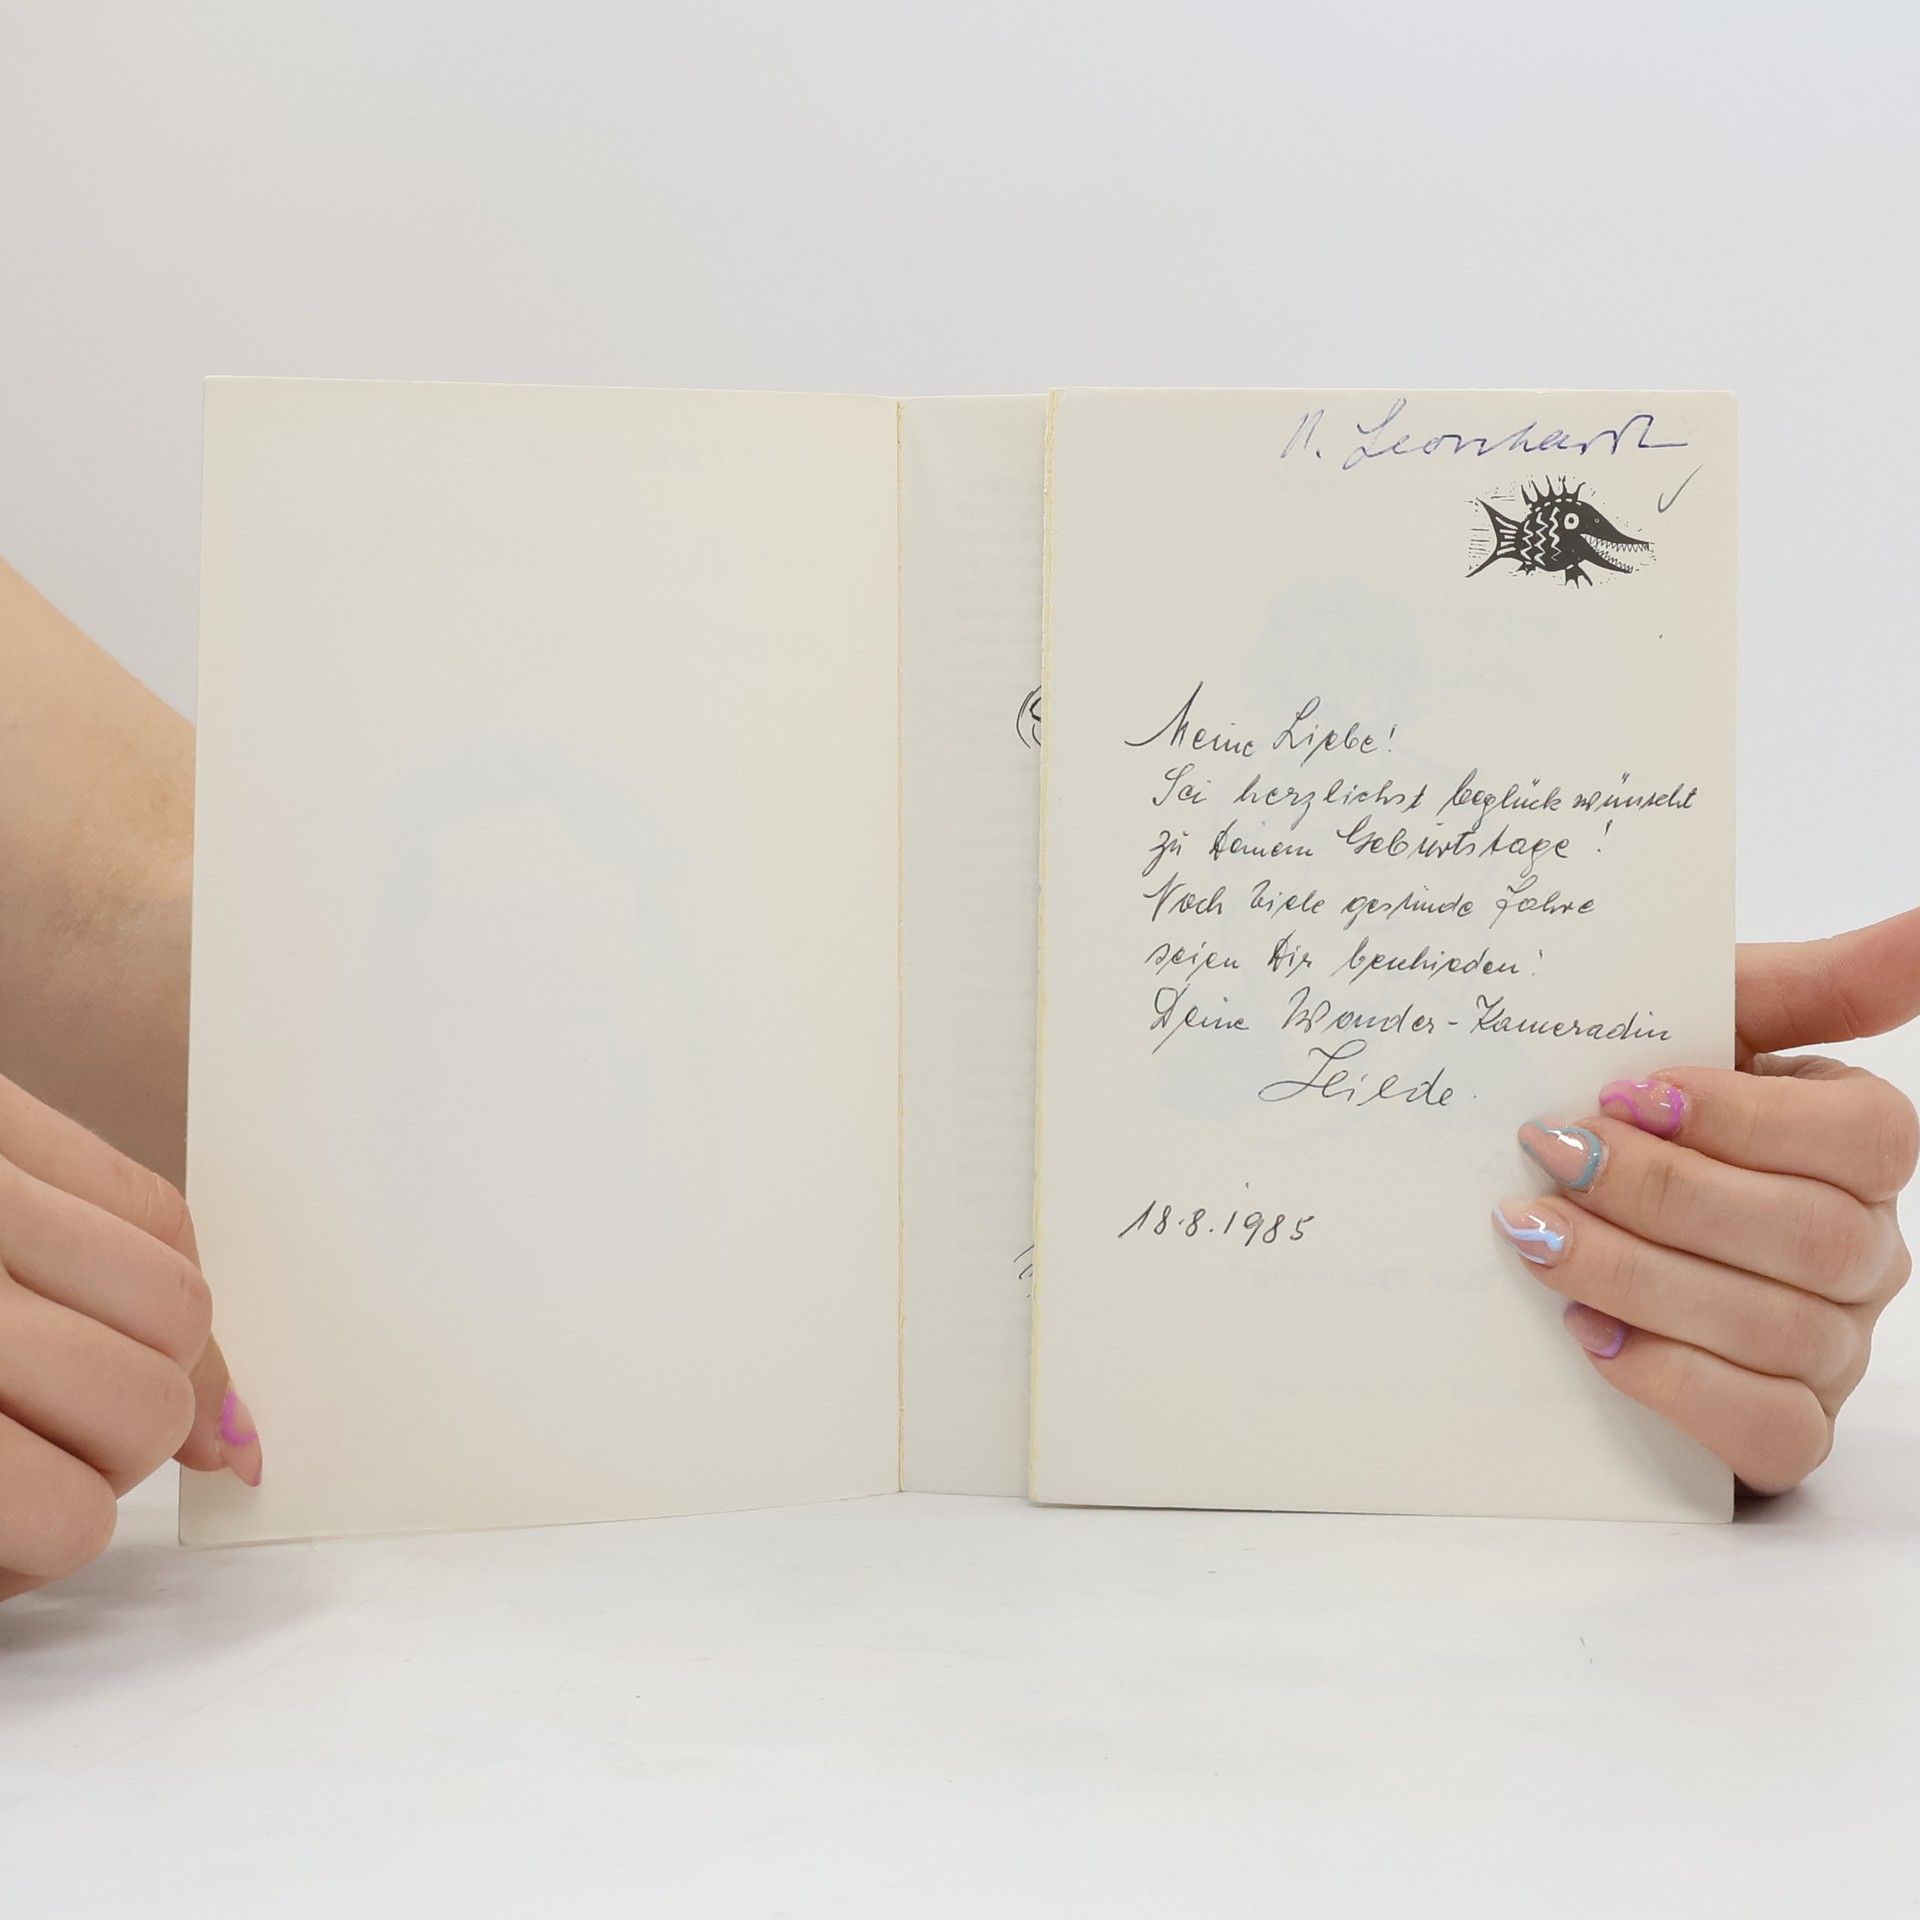 N. Leonhardt
Meine Liebe!
Sei herzlichst beglückwünscht
zu Deinem Geburtstage!
Noch viele gesunde Jahre
seien Dir beschieden!
Deine Wander-Kameradin
Hilde.
18.8.1985